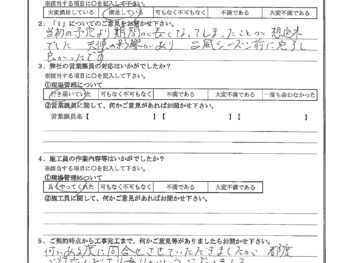 ※該当する項目に○を記入して下さい。
大変満足している 満足している 可もなく不可もなく 不満である 大変不満である
2．「1」についてのご意見をお聞かせ下さい。
当初の予定より期間が長くなってしまったことが想定外
でした 天候の影響があり 台風シーズン前に完了し
良かったです
3．弊社の営業職員の対応はいかがでしたか？
※該当する項目に○を記入して下さい。
①現場管理について
行き届いていた 可もなく不可もなく 不満である 大変不満である 一度も会わなかった
②営業職員に関して、何かご意見があればお聞かせ下さい。
営業職員名【 】【 】【 】
4．施工員の作業内容等はいかがでしたか？
※該当する項目に○を記入して下さい。
①現場管理について
良くやってくれた 可もなく不可もなく 不満である 大変不満である
②施工員に関して、何かご意見があればお聞かせ下さい。
5．ご契約時点から工事完工まで、何かご意見等がありましたらお聞かせ下さい。
何かある度に問合せさせていただきましたが 都度